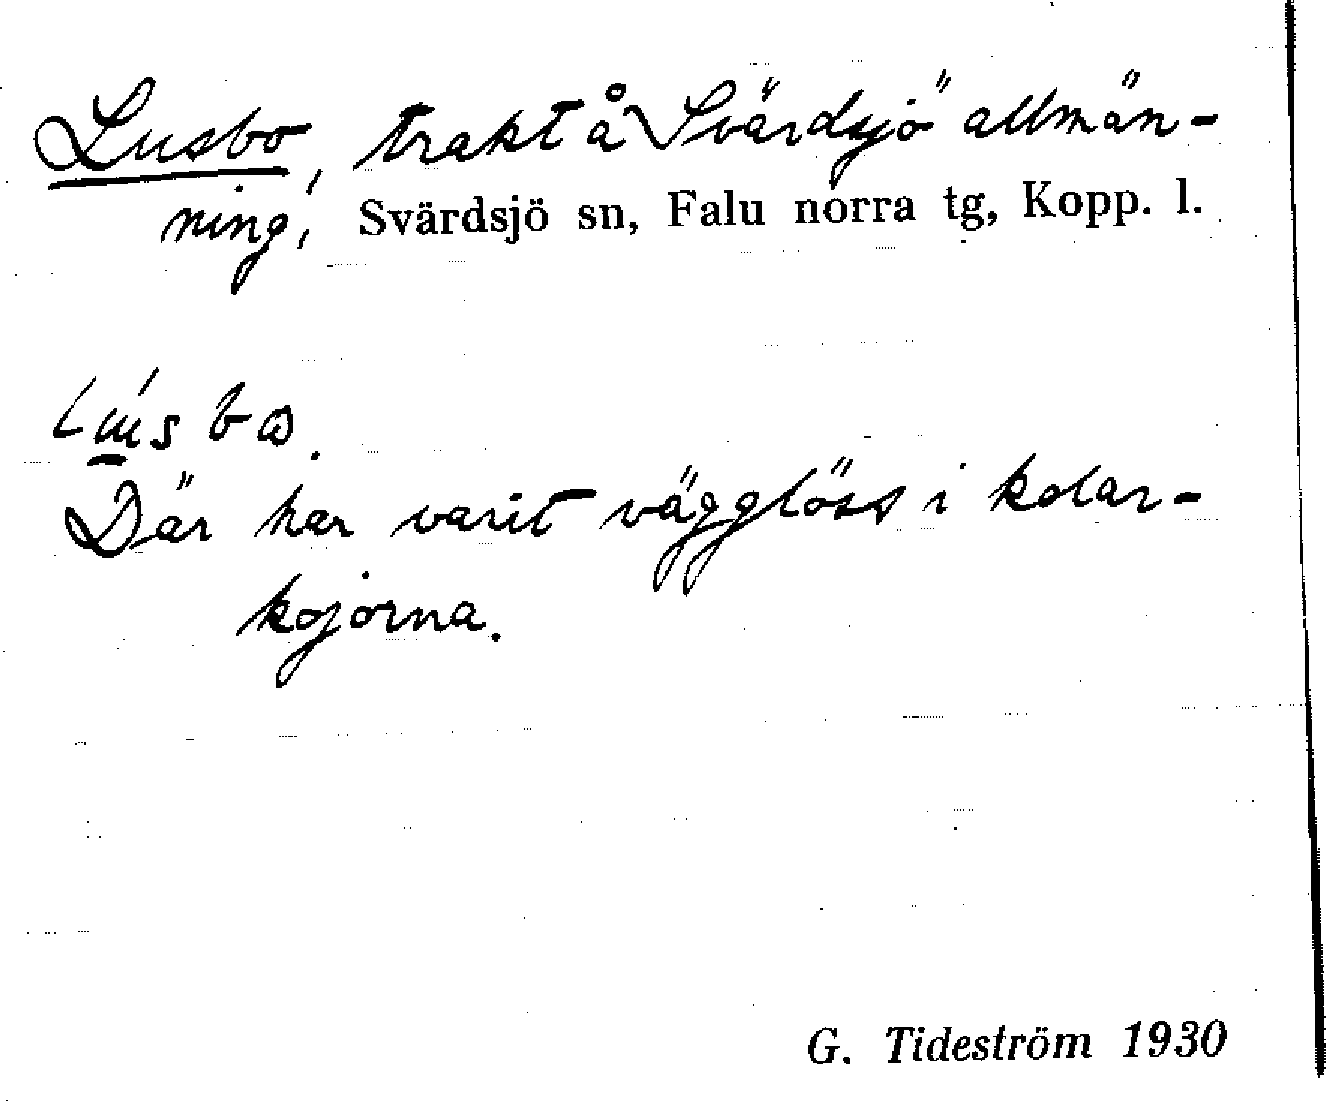 Lusbo, trakt å Svärdsjö allmän-
ning, Svärdsjö sn, Falu norra tg, Kopp. l.
Där har varit vägglöss i kolar-
kojorna.
G. Tideström 1930